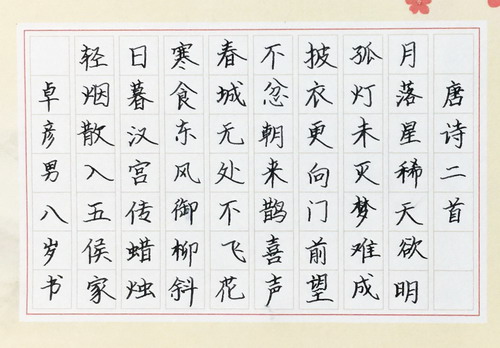 唐诗二首
月落星稀天欲明
孤灯未灭梦难成
披衣更向门前望
不忿朝来鹊喜声
春城无处不飞花
寒食东风御柳斜
日暮汉宫传蜡烛
轻烟散入五侯家
卓彦男八岁书